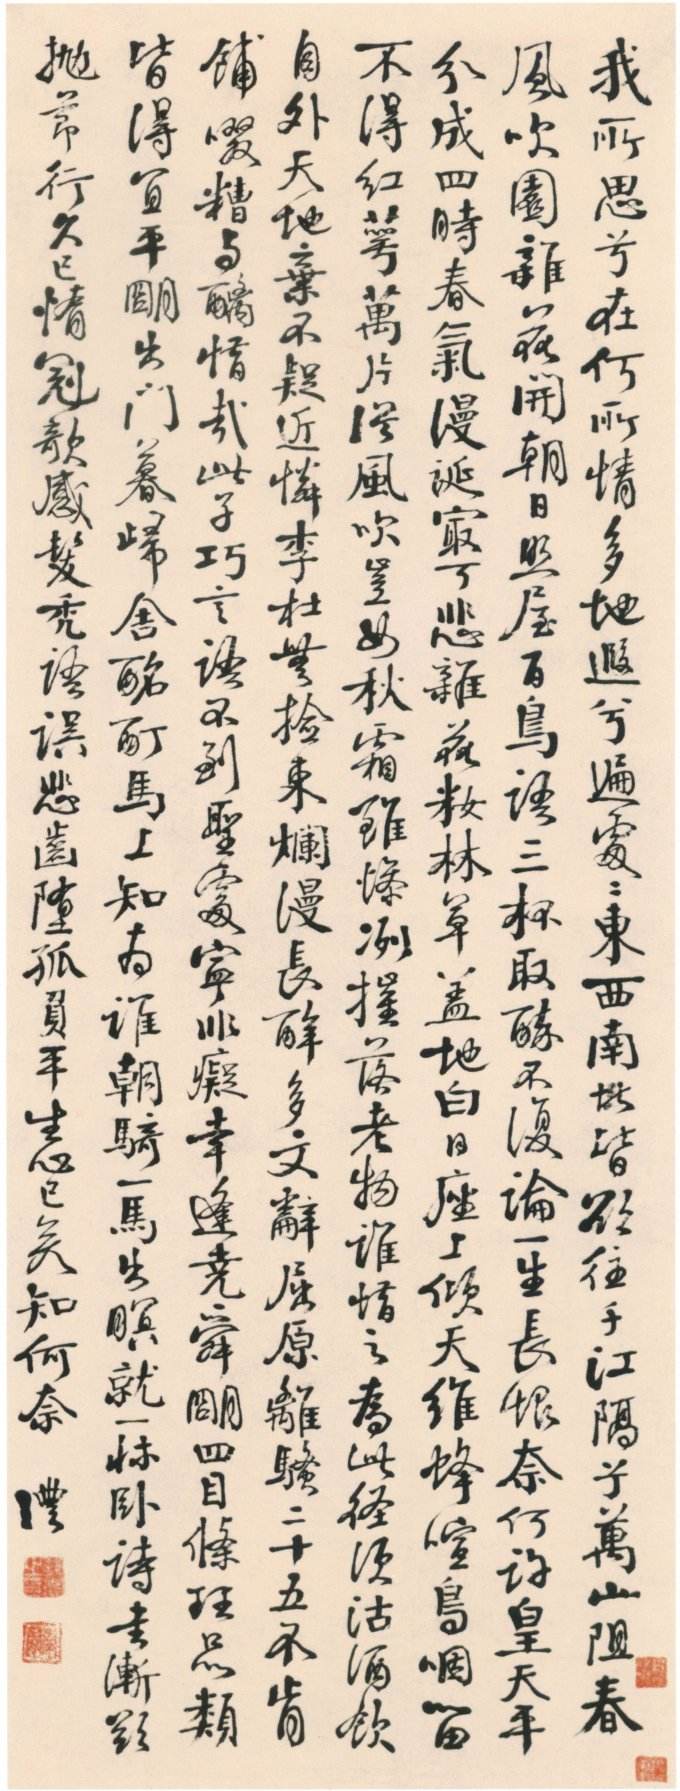 我所思兮在何所情多地遐兮遍處〻東西南北皆欲往千江隔兮萬山阻春
風吹園雜花開朝日照屋百鳥語三杯取醉不復論一生長恨奈何許皇天平
分成四時春氣漫誕最可悲雜花妝林草蓋地白日座上傾天維蜂喧鳥咽留
不得紅萼萬片從風吹豈如秋霜雖慘冽摧落老物誰惜之為此徑須沽酒飲
自外天地棄不疑近憐李杜無檢束爛漫長醉多文辭屈原離騷二十五不肯
餔啜糟與醨惜哉此子巧言語不到聖處寧非癡幸逢堯舜明四目條理品類
皆得宜平明出門暮歸舍酩酊馬上知為誰朝騎一馬出暝就一床卧詩書漸欲
拋節行久已惰冠欹感髮禿語誤悲齒墮孤負平生心已矣知何奈 澧